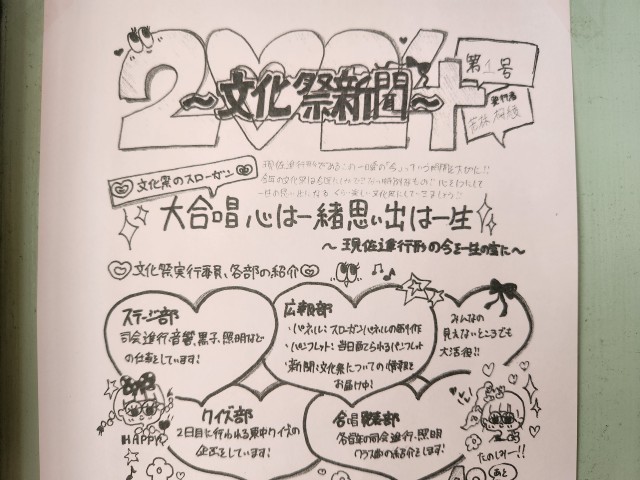 2024
～文化祭新聞～
第1号
発行者
文化祭のスローガン
大合唱 心は一緒思い出は一生
～現佐進行形の今を一生の宝に～
文化祭実行委員、各部の紹介
ステージ部
司会進行、音響、黒子、照明などの
仕事をしています!
広報部
・パネル：スローガンパネルの制作
・パンフレット：当日配られるパンフレット
・新聞：文化祭についての情報を
お届け中!
みんなの
見えないところでも
大活役!!
クイズ部
2日目に行われる東中クイズの
企画をしています!
合唱発表部
各学年の司会進行、照明
クラス曲の紹介をします!
HAPPY
たのしみー!!
あと